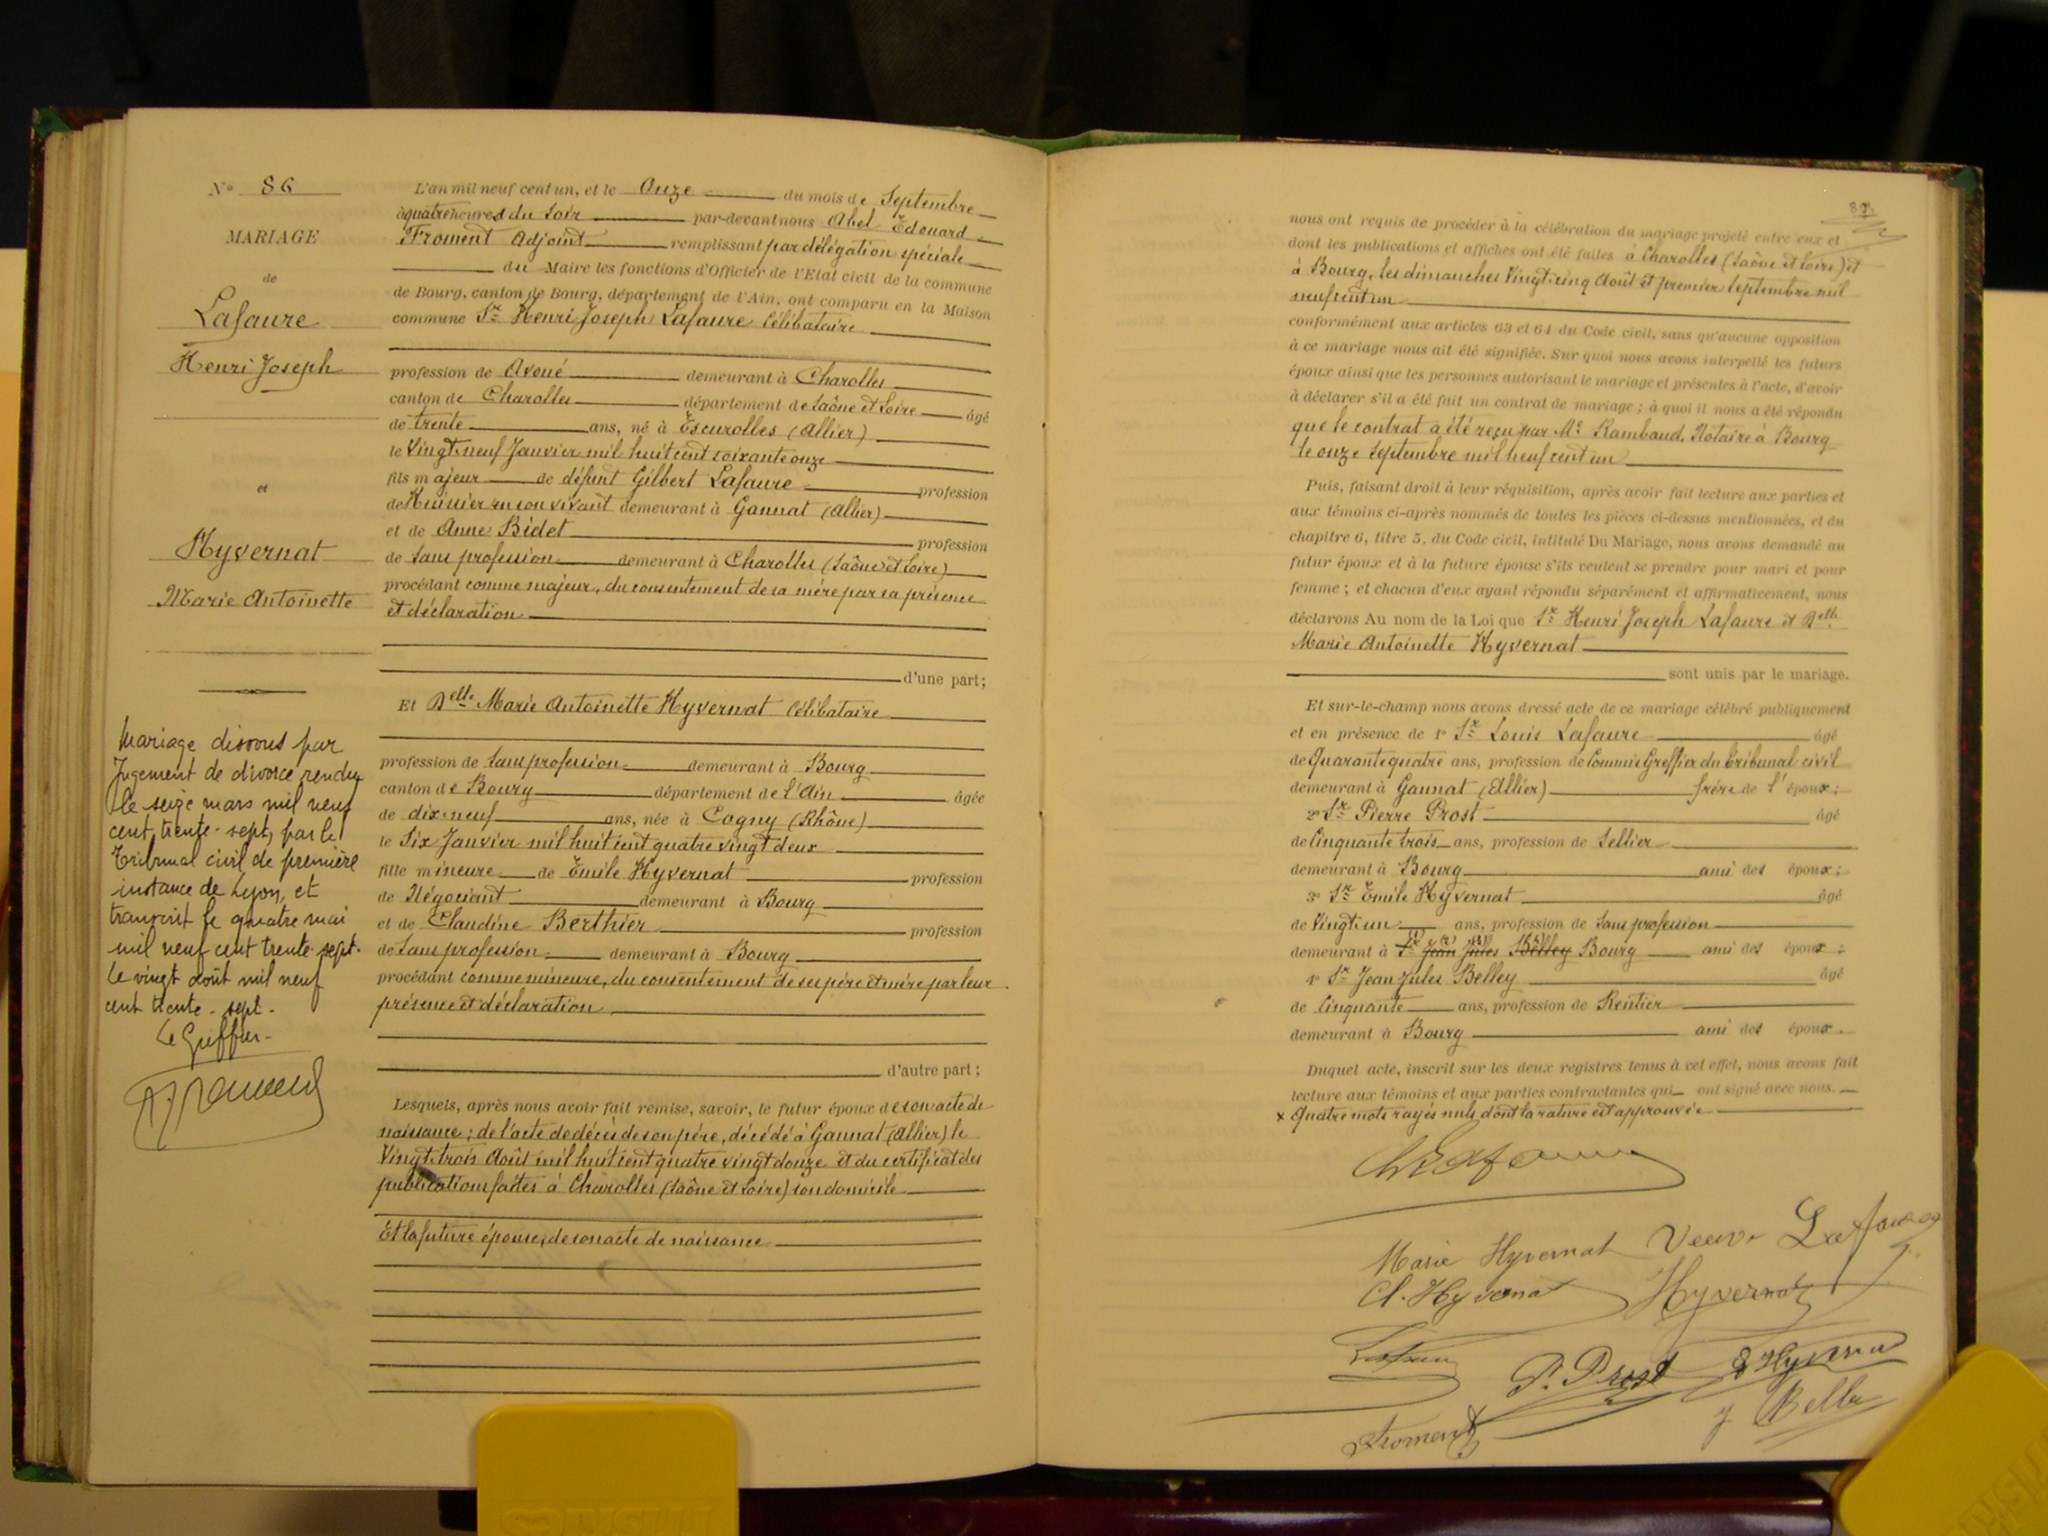 N° 86
MARIAGE
de
Lafaure
Henri Joseph
et
Hyvernat
Marie Antoinette
Mariage dissous par
Jugement de divorce rendu
le seize mars mil neuf
cent trente-sept, par le
Tribunal civil de première
instance de Lyon, et
transcrit le quatre mai
mil neuf cent trente-sept.
Le vingt août mil neuf
cent trente-sept.
Le Greffier
L'an mil neuf cent un, et le Onze du mois de Septembre
à quatre heures du Soir par-devant nous Abel Edouard
Froment Adjoint remplissant par délégation spéciale
du Maire les fonctions d'Officier de l'Etat civil de la commune
de Bourg, canton de Bourg, département de l'Ain, ont comparu en la Maison
commune Sr Henri Joseph Lafaure Célibataire
profession de Avoué demeurant à Charolles
canton de Charolles département de Saône et Loire âgé
de trente ans, né à Escurolles (Allier)
le Vingt-neuf Janvier mil huit cent soixante onze
fils majeur de défunt Gilbert Lafaure profession
de Huissier en son vivant demeurant à Gannat (Allier)
et de Anne Bidet profession
de Sans profession demeurant à Charolles (Saône et Loire)
procédant comme majeur, du consentement de sa mère par sa présence
et déclaration
d'une part;
Et Delle Marie Antoinette Hyvernat Célibataire
profession de Sans profession demeurant à Bourg
canton de Bourg département de l'Ain âgée
de dix-neuf ans, née à Cogny (Rhône)
le Six Janvier mil huit cent quatre vingt deux
fille mineure de Emile Hyvernat profession
de Négociant demeurant à Bourg
et de Claudine Berthier profession
de Sans profession demeurant à Bourg
procédant comme mineure, du consentement de ses père et mère par leur
présence et déclaration
d'autre part;
Lesquels, après nous avoir fait remise, savoir, le futur époux de son acte de
naissance; de l'acte de décès de son père, décédé à Gannat (Allier) le
Vingt-trois Août mil huit cent quatre vingt douze et du certificat des
publications faites à Charolles (Saône et Loire) son domicile
Et la future épouse, de son acte de naissance
nous ont requis de procéder à la célébration du mariage projeté entre eux et
dont les publications et affiches ont été faites à Charolles (Saône et Loire) et
à Bourg, les dimanches Vingt-cinq Août et premier Septembre mil
neuf cent un
conformément aux articles 63 et 64 du Code civil, sans qu'aucune opposition
à ce mariage nous ait été signifiée. Sur quoi nous avons interpellé les futurs
époux ainsi que les personnes autorisant le mariage et présentes à l'acte, d'avoir
à déclarer s'il a été fait un contrat de mariage; à quoi il nous a été répondu
que le contrat à été reçu par Me Rambaud, Notaire à Bourg
le onze Septembre mil neuf cent un
Puis, faisant droit à leur réquisition, après avoir fait lecture aux parties et
aux témoins ci-après nommés de toutes les pièces ci-dessus mentionnées, et du
chapitre 6, titre 5, du Code civil, intitulé Du Mariage, nous avons demandé au
futur époux et à la future épouse s'ils veulent se prendre pour mari et pour
femme; et chacun d'eux ayant répondu séparément et affirmativement, nous
déclarons Au nom de la Loi que Sr Henri Joseph Lafaure et Delle
Marie Antoinette Hyvernat
sont unis par le mariage.
Et sur-le-champ nous avons dressé acte de ce mariage célébré publiquement
et en présence de 1° Sr Louis Lafaure âgé
de Quarante quatre ans, profession de Commis Greffier du tribunal civil
demeurant à Gannat (Allier) frère de l'époux;
2° Sr Pierre Prost âgé
de Cinquante trois ans, profession de Sellier
demeurant à Bourg ami des époux;
3° Sr Emile Hyvernat âgé
de Vingt un ans, profession de Sans profession
demeurant à Sr Jean Jules Belley Bourg ami des époux;
4° Sr Jean Jules Belley âgé
de Cinquante ans, profession de Rentier
demeurant à Bourg ami des époux.
Duquel acte, inscrit sur les deux registres tenus à cet effet, nous avons fait
lecture aux témoins et aux parties contractantes qui ont signé avec nous.
x Quatre mots rayés nuls dont la rature est approuvée
Marie Hyvernat Veuve Lafaure
Cl. Hyvernat Hyvernat
P. Prost E Hyvernat
Froment J Belley